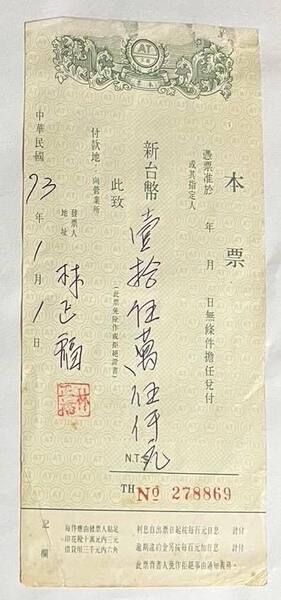 AT
本票
憑票准於　年　月　日無條件擔任兌付
或其指定人
新台幣壹拾伍萬伍仟元
N.T.$
此致
(此票免除作成拒絕證書)
付款地：向營業所
發票人 林正福
地址
中華民國 73 年 1 月 1 日
TH No 278869
利息自出票日起按每百元日息　計付
逾期違約金另按每百元加日息　計付
此票背書人免作拒絕事由通知義務。
記
欄